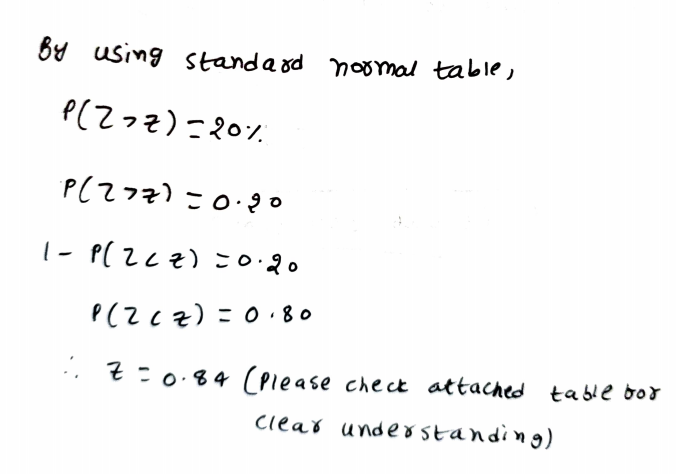 By using standard normal table,
P(Z>z) = 20%
P(Z>z) = 0.20
1 - P(Z<z) = 0.20
P(Z<z) = 0.80
∴ z = 0.84 (Please check attached table for
clear understanding)